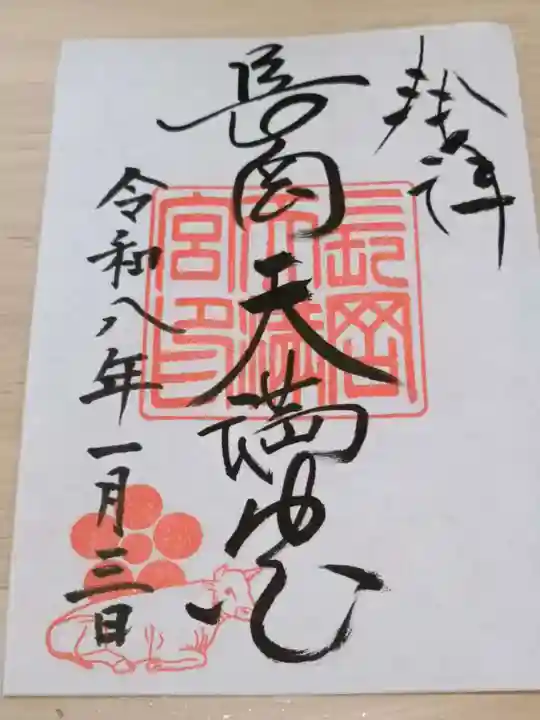 奉拝
長岡天満宮
令和八年一月三日
長岡
天満
宮印